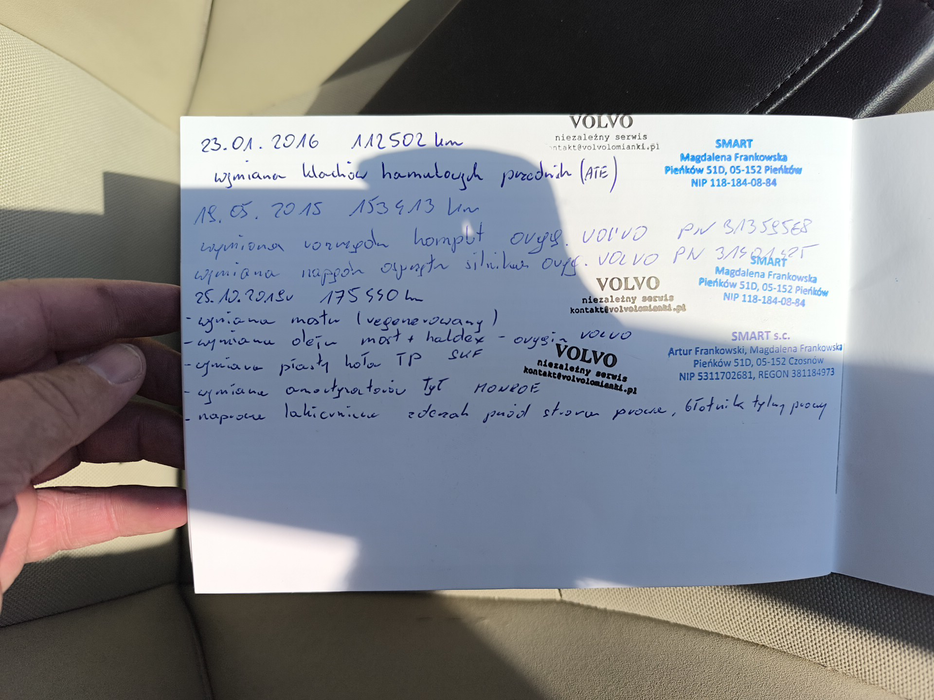 VOLVO
niezależny serwis
kontakt@volvolomianki.pl
SMART
Magdalena Frankowska
Pieńków 51D, 05-152 Pieńków
NIP 118-184-08-84
23.01.2016 112502 km
wymiana klocków hamulcowych przednich (ATE)
19.05.2015 153413 km
wymiana rozrządu komplet oryg. VOLVO PN 31359568
wymiana napędu osprzętu silnikowe oryg. VOLVO PN
SMART
Magdalena Frankowska
Pieńków 51D, 05-152 Pieńków
NIP 118-184-08-84
VOLVO
niezależny serwis
kontakt@volvolomianki.pl
25.10.2019r 175440 km
- wymiana mostu (regenerowany)
- wymiana oleju most + haldex - orygin VOLVO
- wymiana piasty koła TP SKF
- wymiana amortyzatorów tył MONROE
- naprawa lakiernicza zderzak przód strona prawa, błotnik tylny prawy
VOLVO
niezależny serwis
kontakt@volvolomianki.pl
SMART s.c.
Artur Frankowski, Magdalena Frankowska
Pieńków 51D, 05-152 Czosnów
NIP 5311702681, REGON 381184973